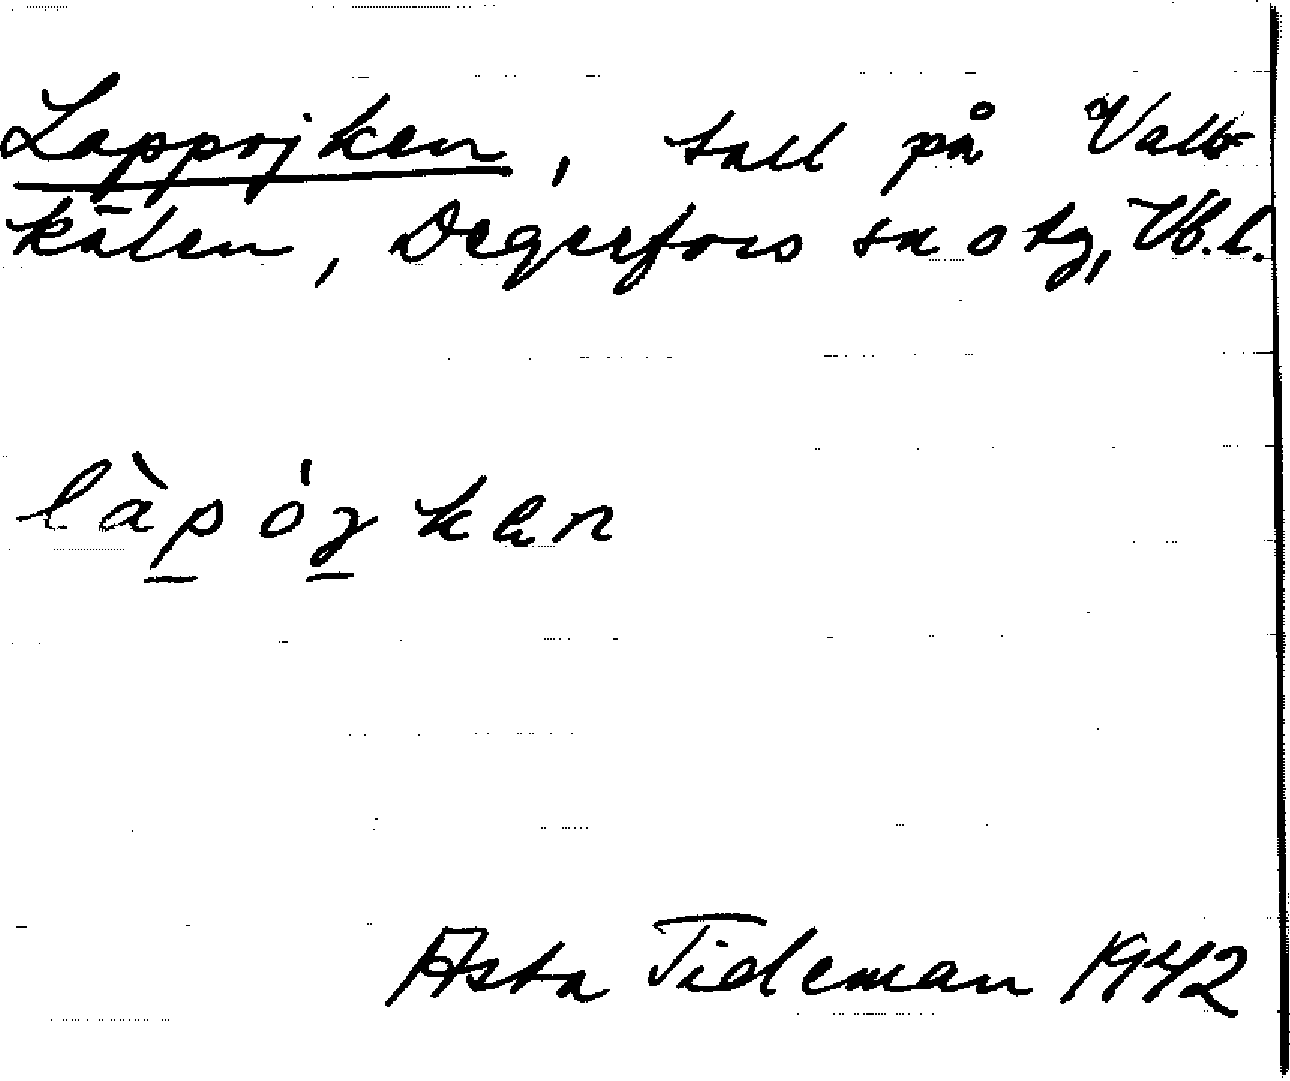 Lappojken, tall på Vall-
kälen, Degerfors sn o tg, Vb.l.
làpóʒken
Asta Tideman 1942